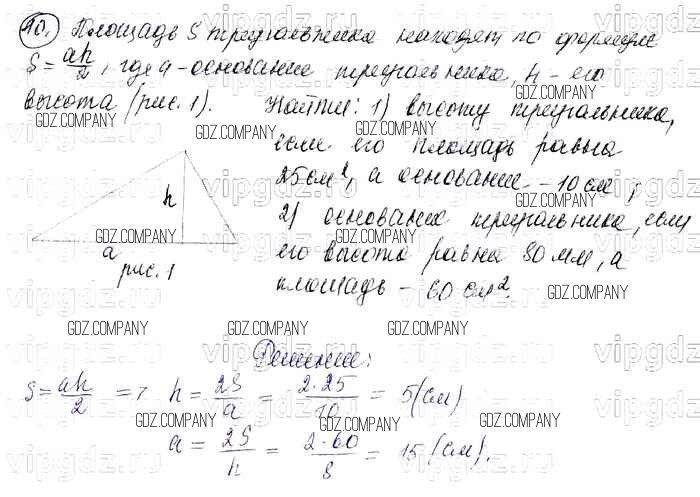 10. Площадь S треугольника находят по формуле
S = ah/2, где a - основание треугольника, h - его
высота (рис. 1). Найти: 1) высоту треугольника,
если его площадь равна
25 см², а основание - 10 см;
2) основание треугольника, если
его высота равна 80 мм, а
площадь - 60 см².
h
a
рис. 1
Решение:
S = ah/2 => h = 2S/a = 2·25/10 = 5 (см)
a = 2S/h = 2·60/8 = 15 (см).
GDZ.COMPANY
vipgdz.ru